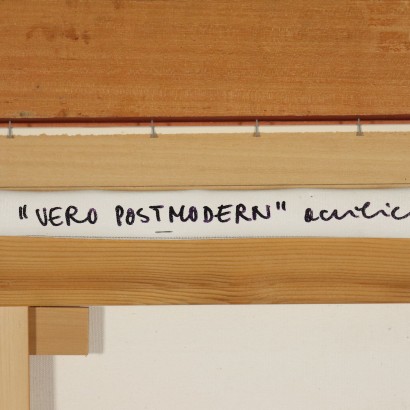 "VERO POSTMODERN" acrilic